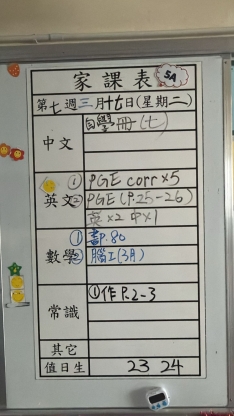 家課表 5A
第七週三月十七日(星期二)
中文 自學冊(七)
英文 ① PGE corr x5
② PGE (P.25-26)
英x2 中x1
數學 ① 書P.80
② 腦工(3月)
常識 ①作P.2-3
其它
值日生 23 24